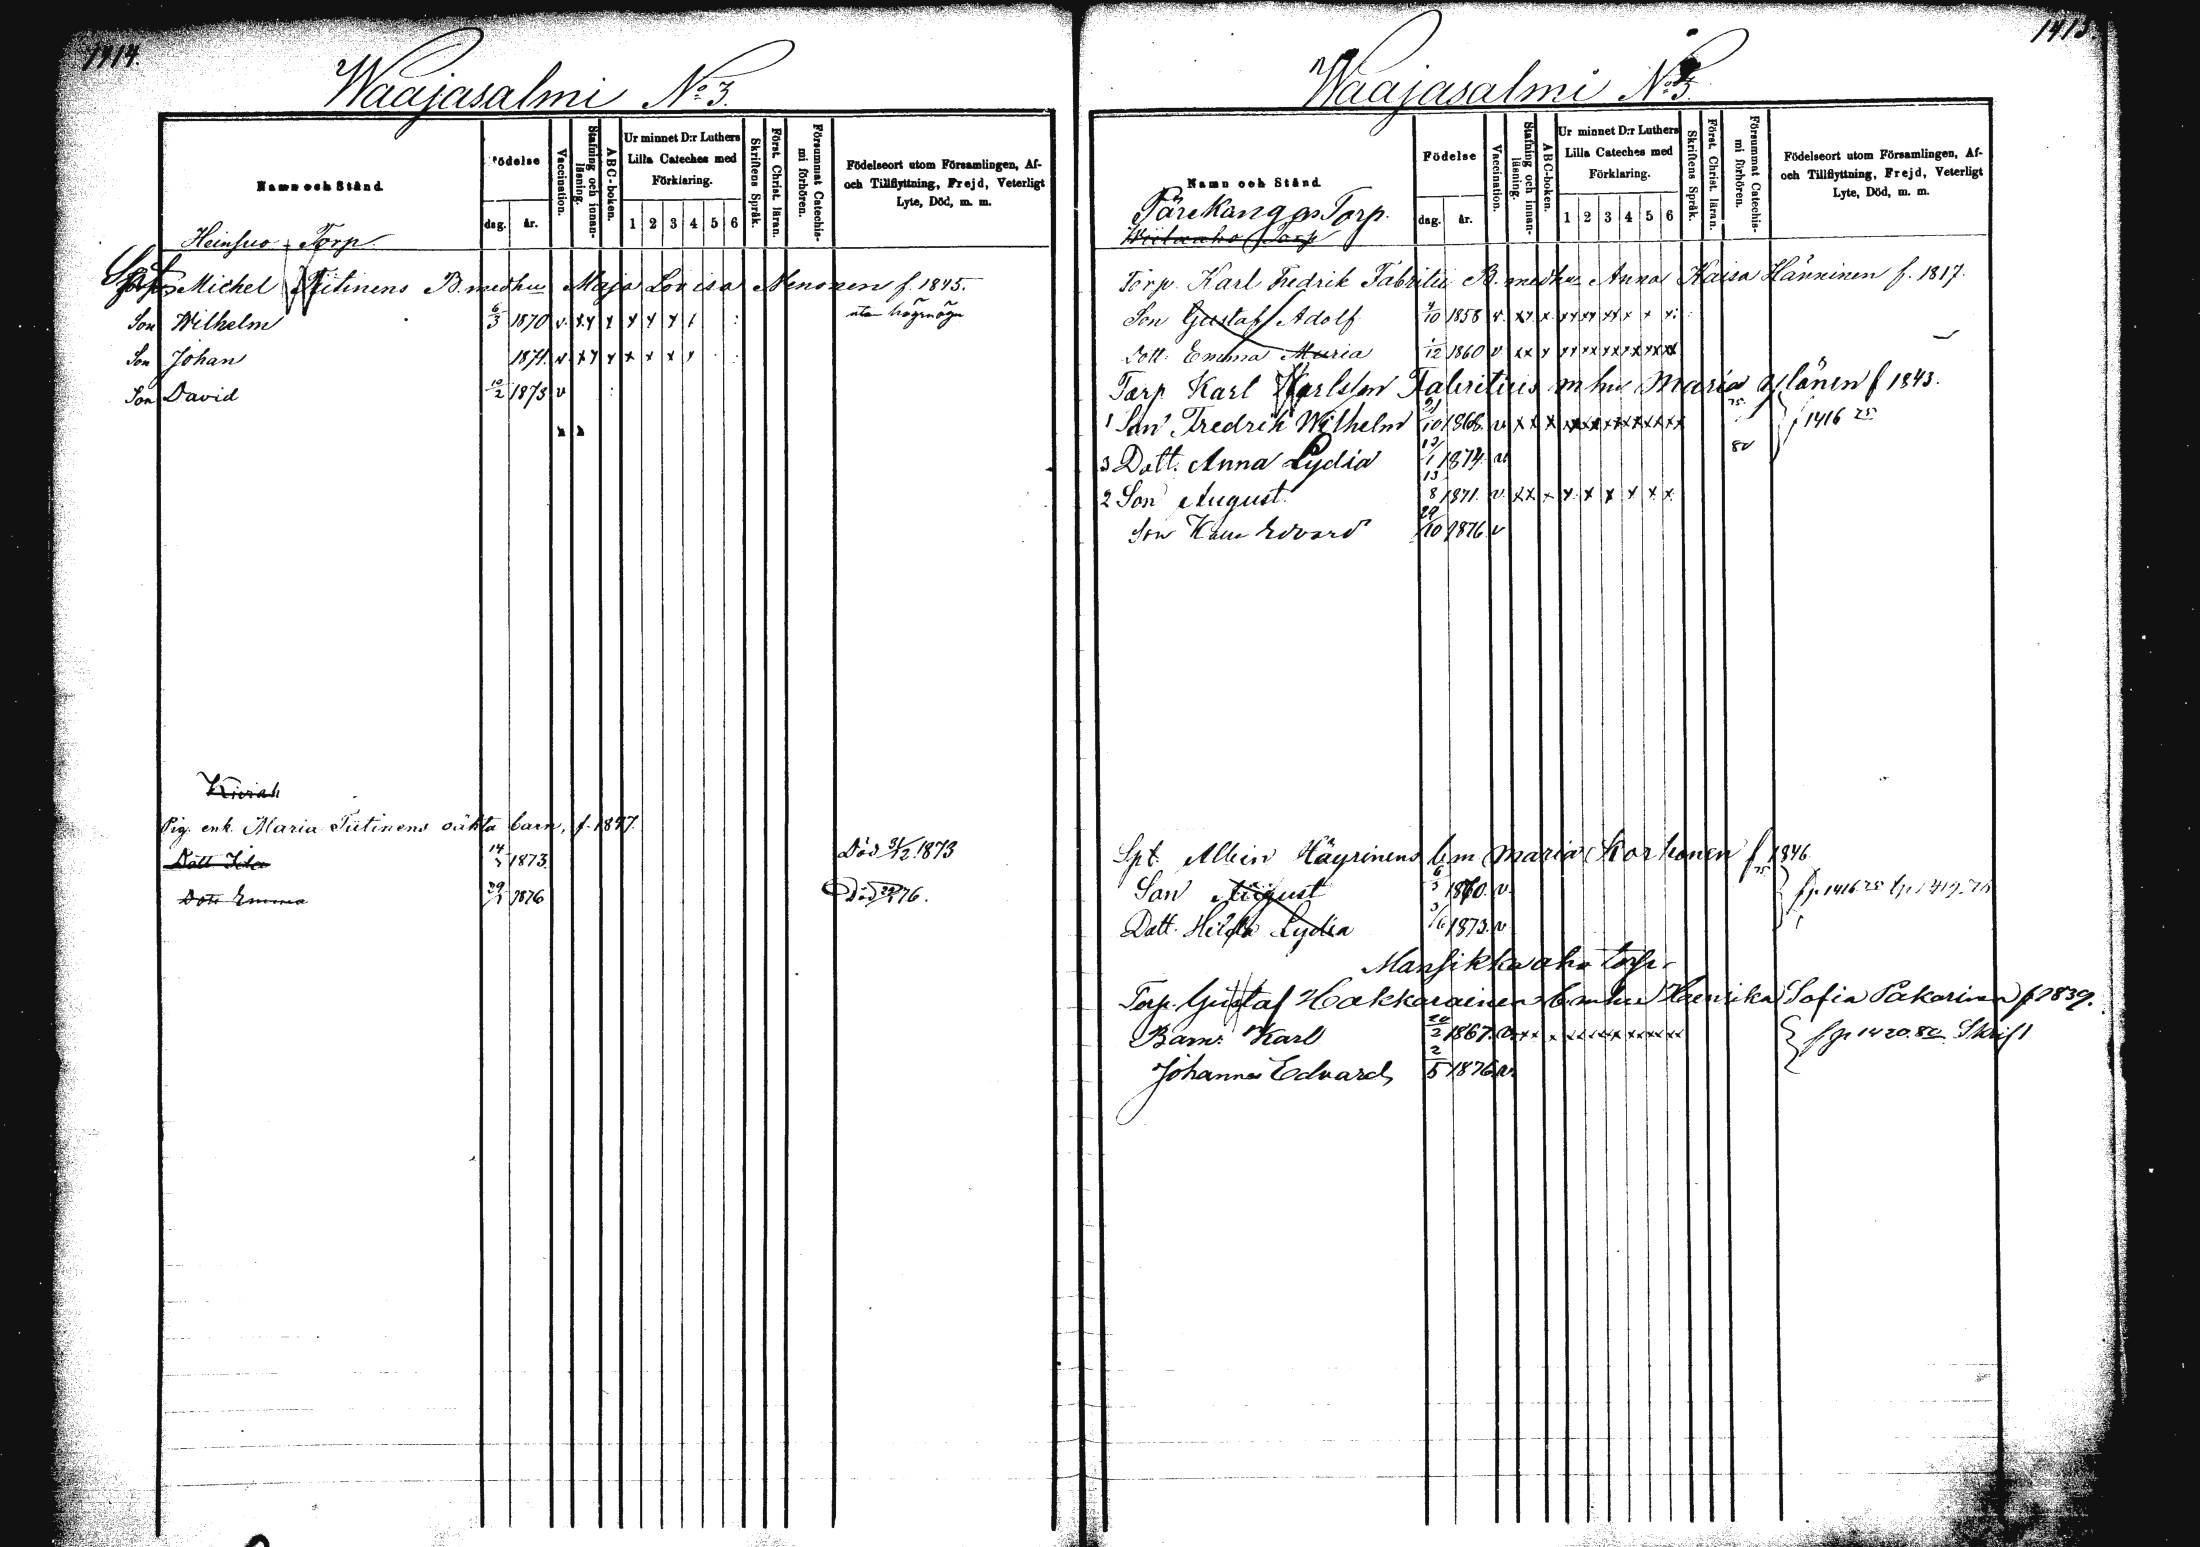 1414.
Waajasalmi No 3.
Namn och Stånd
Födelse
dag. år.
Vaccination.
Stafning och innanläsning.
ABC-boken.
Ur minnet D:r Luthers Lilla Cateches med Förklaring.
1 2 3 4 5 6
Skriftens Språk.
Först. Christ. läran.
Försummat Catechismi förhören.
Födelseort utom Församlingen, Af- och Tillflyttning, Frejd, Veterligt Lyte, Död, m. m.
Heinsuo Torp
Michel Tiitinens B. med hu Maja Lovisa Nenonen f. 1845.
Son Wilhelm 6/3 1870 v. xy x y y y
Son Johan 1871. v xy x x x x y
Son David 10/2 1873 v
Pig. enk. Maria Tiitinens oäkta barn, f. 1847.
Dott 14 1873 Död 1873
Dott Emma 29 1876 Död 76.
1415.
Waajasalmi No 3.
Namn och Stånd
Födelse
dag. år.
Vaccination.
Stafning och innanläsning.
ABC-boken.
Ur minnet D:r Luthers Lilla Cateches med Förklaring.
1 2 3 4 5 6
Skriftens Språk.
Först. Christ. läran.
Försummat Catechismi förhören.
Födelseort utom Församlingen, Af- och Tillflyttning, Frejd, Veterligt Lyte, Död, m. m.
Pärekangas Torp.
Torp. Karl Fredrik Fabritii B. med hu Anna Kaisa Hänninen f. 1817.
Son Gustaf Adolf 4/10 1858 v. xx x xx xx xx x x x
Dott. Emma Maria 1/12 1860 v xx x xx xx xx xx xx xx
Torp Karl Karlsson Fabritius m hu Maria Ylönen f 1843.
1 Son Fredrik Wilhelm 21/10 1868. v xx x xx xx xx xx xx xx 75 f 1416 75
3 Dott. Anna Lydia 12/1 1874. v 80
2 Son August. 13/8 1871. v. xx x x x x x x x
Son Edvard 29/10 1876. v
Spt. Albin Häyrinens b m Maria Korhonen f 1846
Son August 6/3 1870. v. 75 fp. 1416 75
Dott. Hilda Lydia 3/6 1873. v
Mansikkaaho torp.
Torp. Gustaf Hakkarainen b m hu Henrika Sofia Pakarinen f 1839.
Barn: Karl 20/2 1867. v. xx x xx xx xx xx xx xx fp 1420. 80 Skrift
Johannes Edvard 2/5 1876. v.